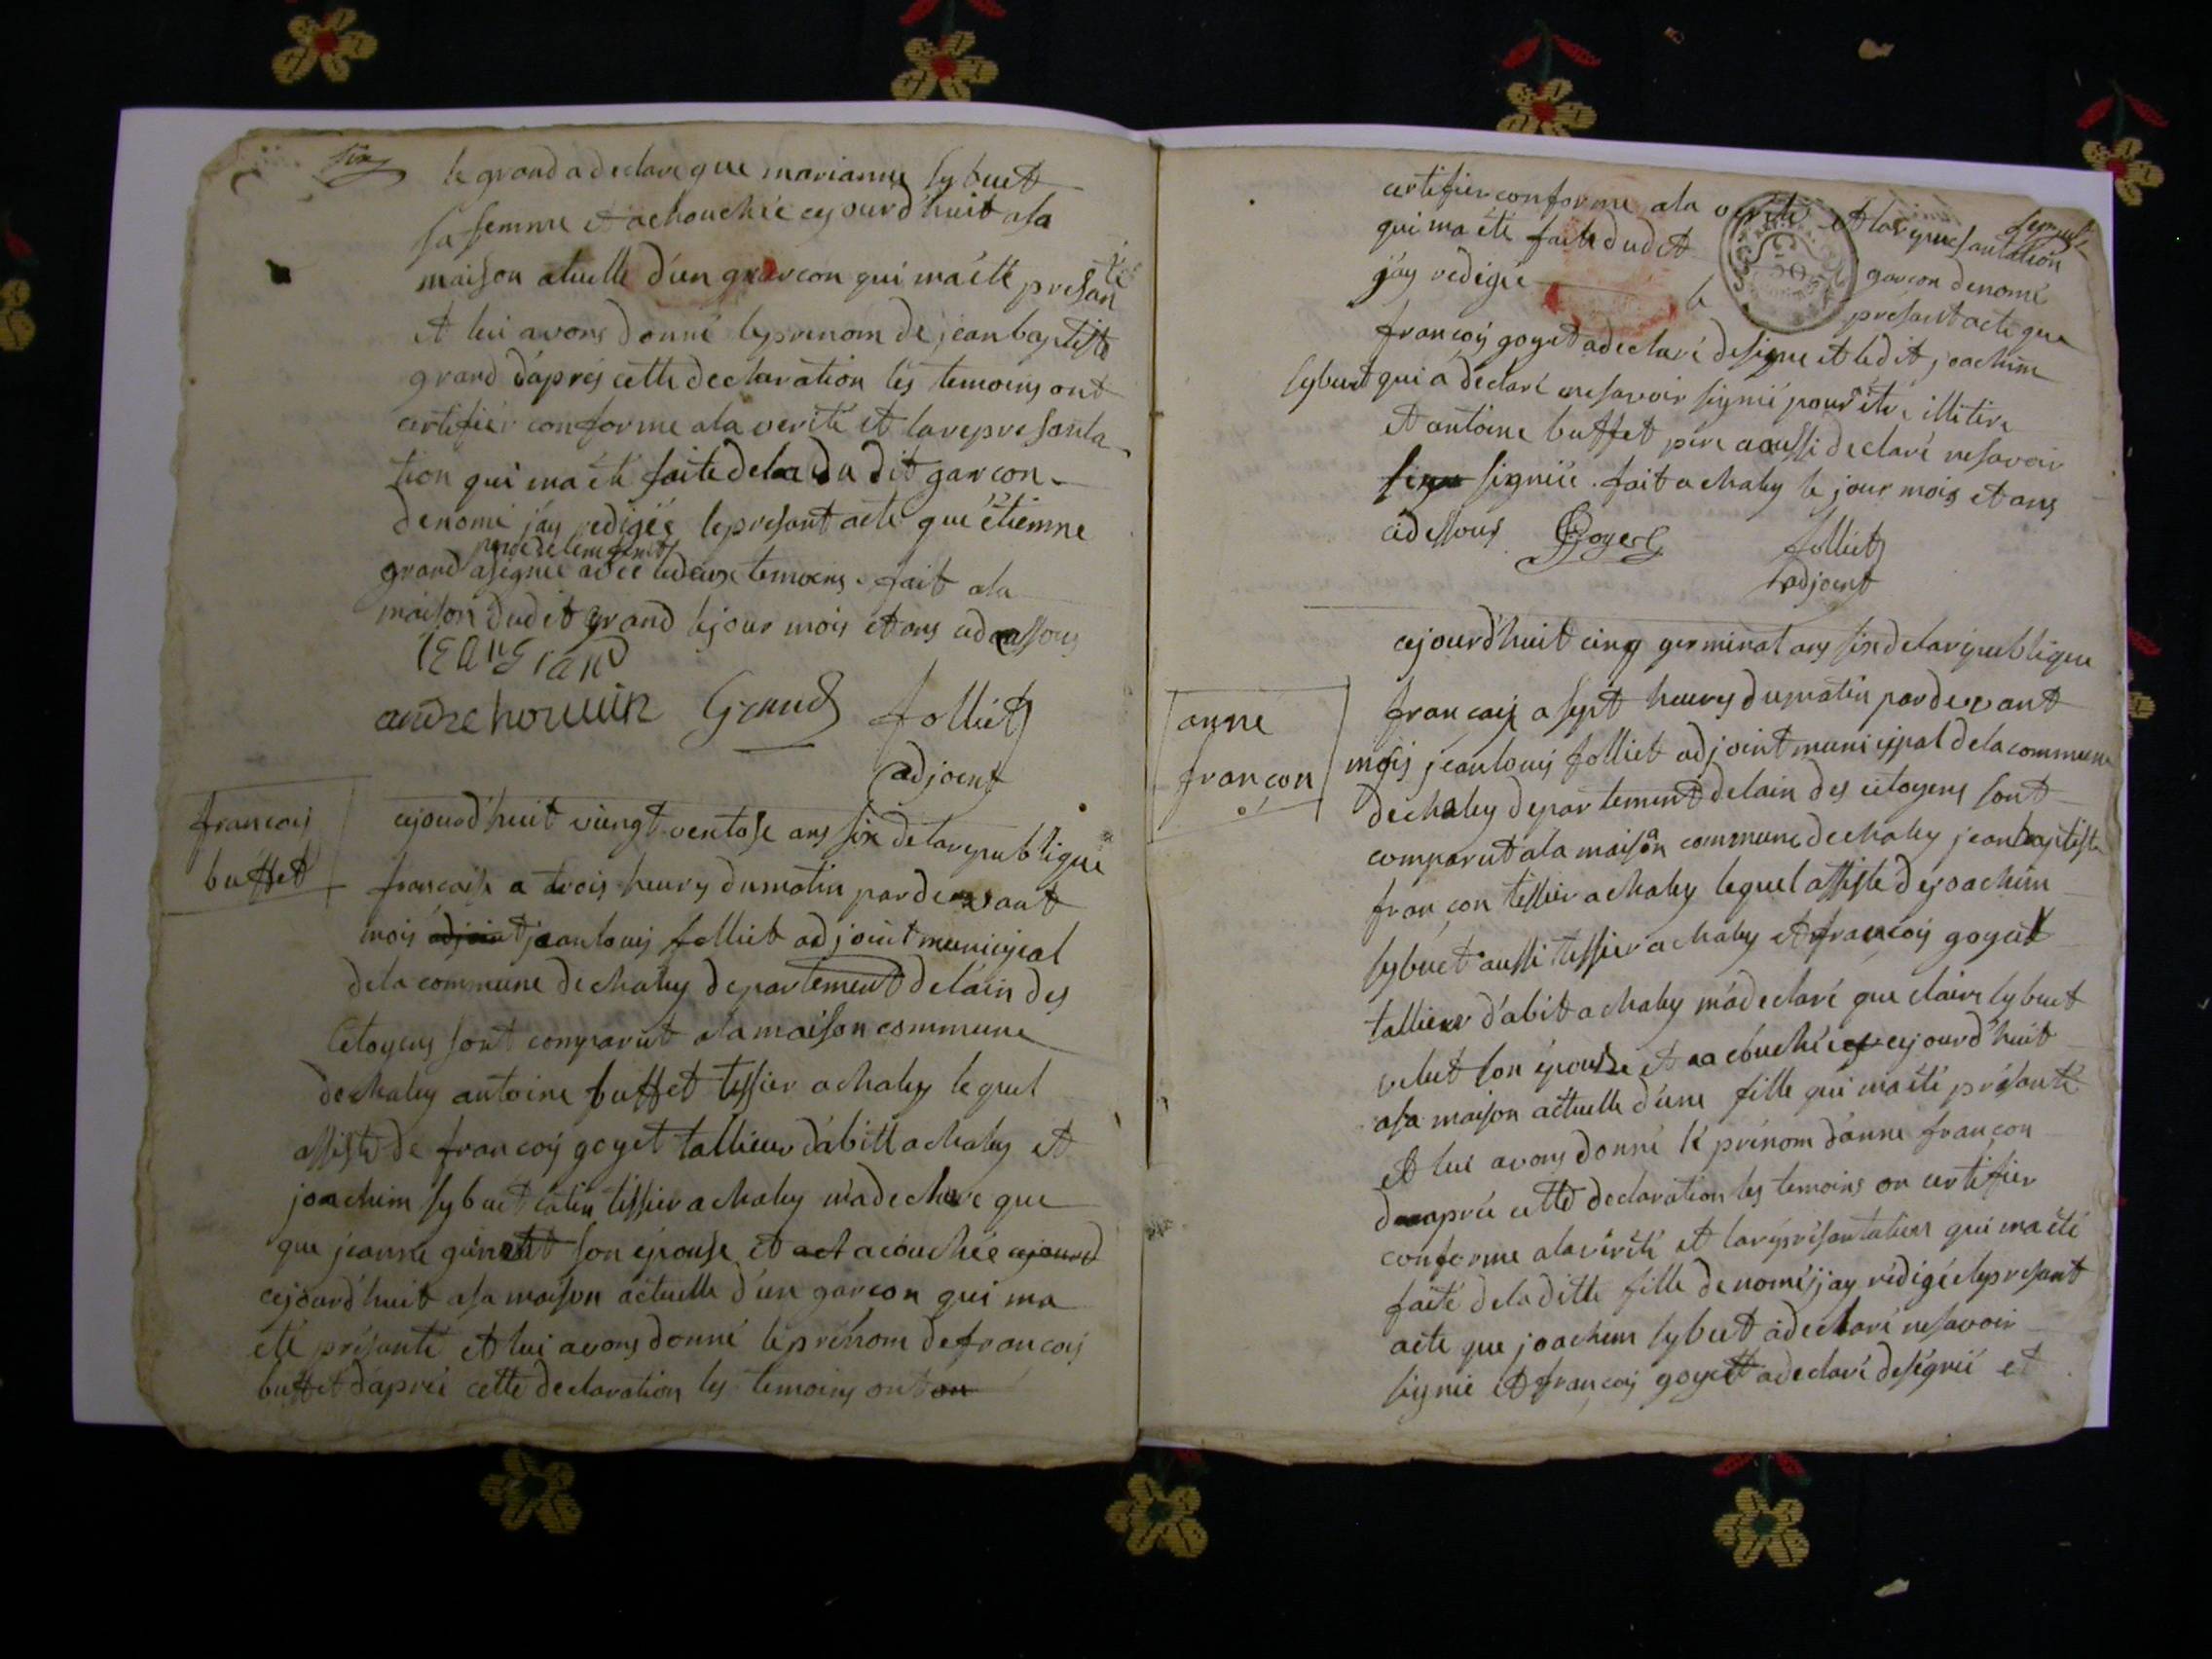 six
le grand a declare que marianne sybuet
sa femme et achouchée cejourd'huit ala
maison atuelle d'un garcon qui ma été presan
té
et lui avons donné le prenom de jean baptiste
grand d'aprés cette declaration les temoins ont
certifiér conforme ala verité et la represanta
tion qui ma été faite dela du dit garcon
denomé j'ay redigée le presant acte que étienne
grand a signée avec le deux temoins. fait ala
maison dudit grand le jour mois et ans cidessous
JEAN GRAND
andre houuin Grand folliet
adjoent
francois
buffet
cejourd'huit vingt ventose ans six de la republique
francaise a trois heures du matin par devant
mois adjoint jean louis folliet adjoint municipal
dela commune de chaley departement de l'ain des
Citoyens sont comparut ala maison commune
de chaley antoine buffet tissier a chaley lequel
assiste de francois goyet tallieur d'abitt a chaley et
joachim sybuet catin tissier a chaley m'a declare que
que jeanne guinet son épouse et act acouchée cejourd
cejourd'huit asa maison actuelle d'un garcon qui ma
été présanté et lui avons donné le prénom de francois
buffet d'aprés cette declaration les temoins ont on
certifier conforme ala verité et la represantation
qui ma été faite dudit garcon denomé
j'ay redigée le présant acte que
francois goyet a declaré de signe et ledit joachim
sybuet qui á déclaré nesavoir signié pour étre illitire
et antoine buffet pére a aussi declaré nesavoir
signe signiée. fait a chaley le jour mois et ans
cidessous Goyet folliet
adjoent
cejourd'huit cinq germinal ans six dela republique
anne
francon
francais a sept heures du matin par devant
mois jean louis folliet adjoint municipal dela commune
de chaley departement de lain des citoyens sont
comparut ala maison commune de chaley jean baptiste
francon tissier a chaley lequel assiste de joachim
sybuet aussi tissier a chaley et francois goyet
tallieur d'abit a chaley m'a declaré que claire sybuet
velut son épouse et acouchée cejourd'huit
asa maison actuelle d'une fille qui ma été présanté
et lui avons donné le prénom d'anne francon
daprée cette declaration les temoins on certifier
conforme ala vérité et la représantation qui ma été
faite dela ditte fille denomé j'ay rédigée le presant
acte que joachim sybuet a declaré nesavoir
signie et francois goyet a declaré designié et